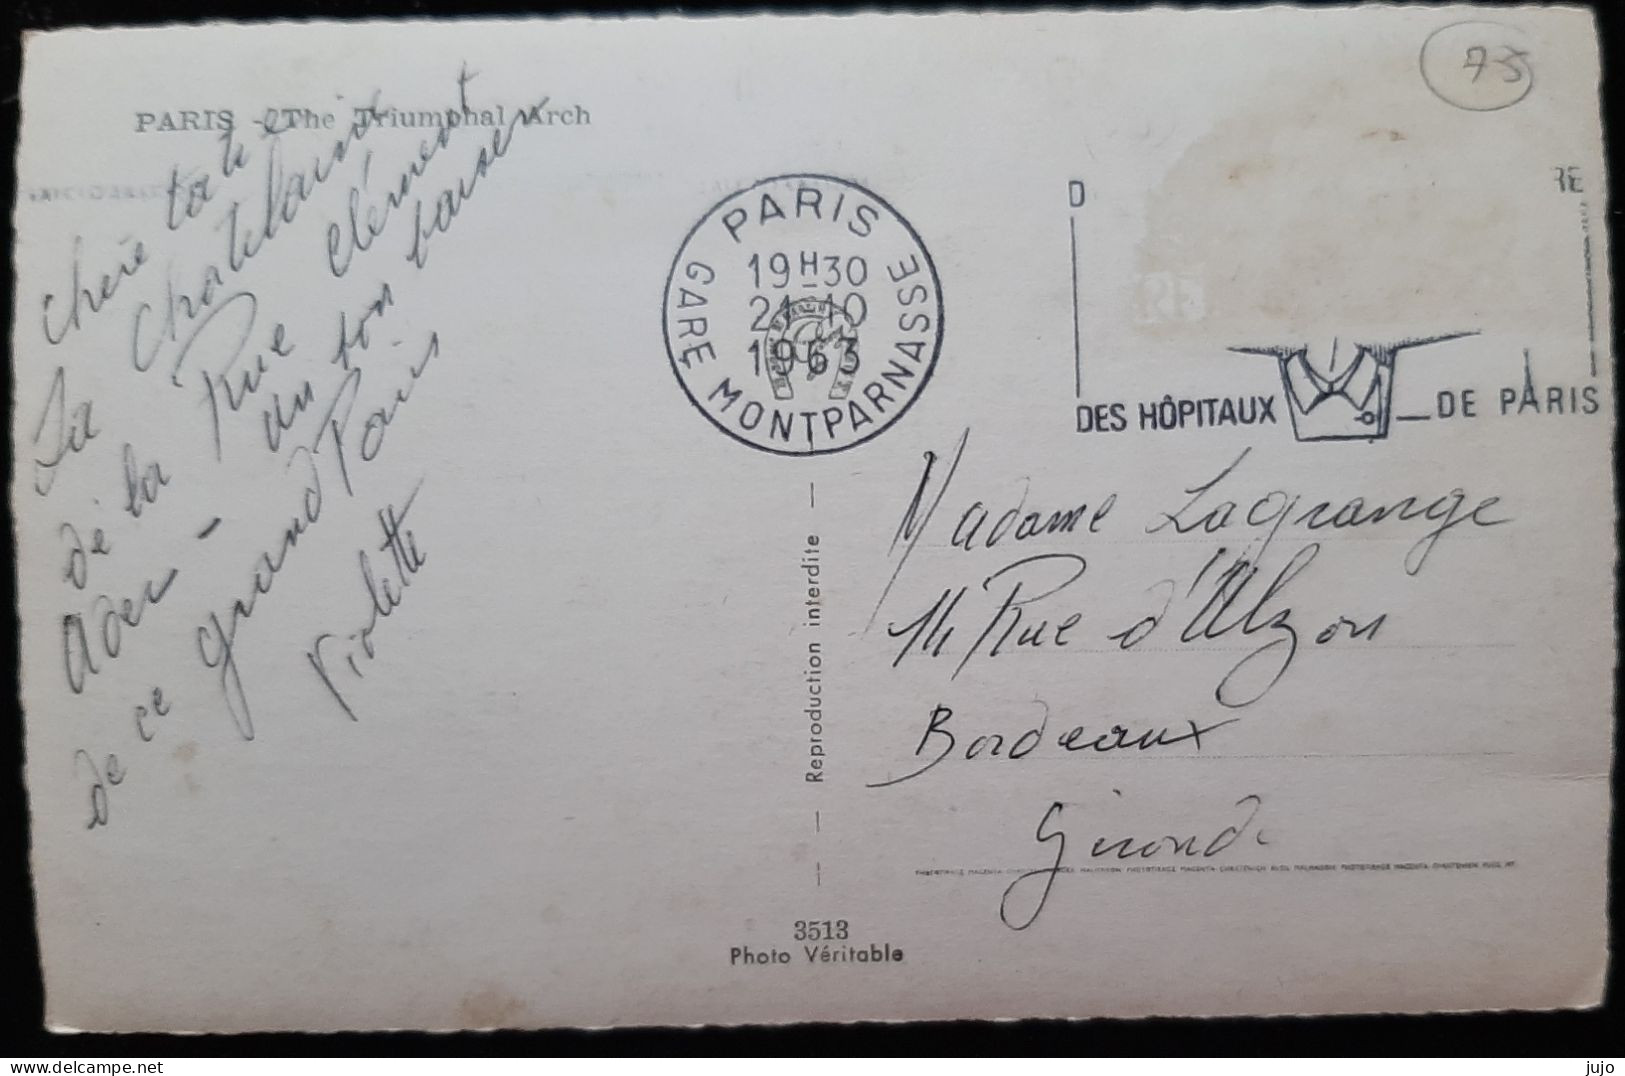 PARIS - The Triumphal Arch
chère tati
La chatelaine
de la Rue clément
Ader - un bon baiser
de ce grand Paris
Violette
75
PARIS
19H30
21-10
1963
GARE MONTPARNASSE
D
RE
DES HÔPITAUX
DE PARIS
Madame Lagrange
14 Rue d'Alzon
Bordeaux
Gironde
Reproduction interdite
3513
Photo Véritable
jujo